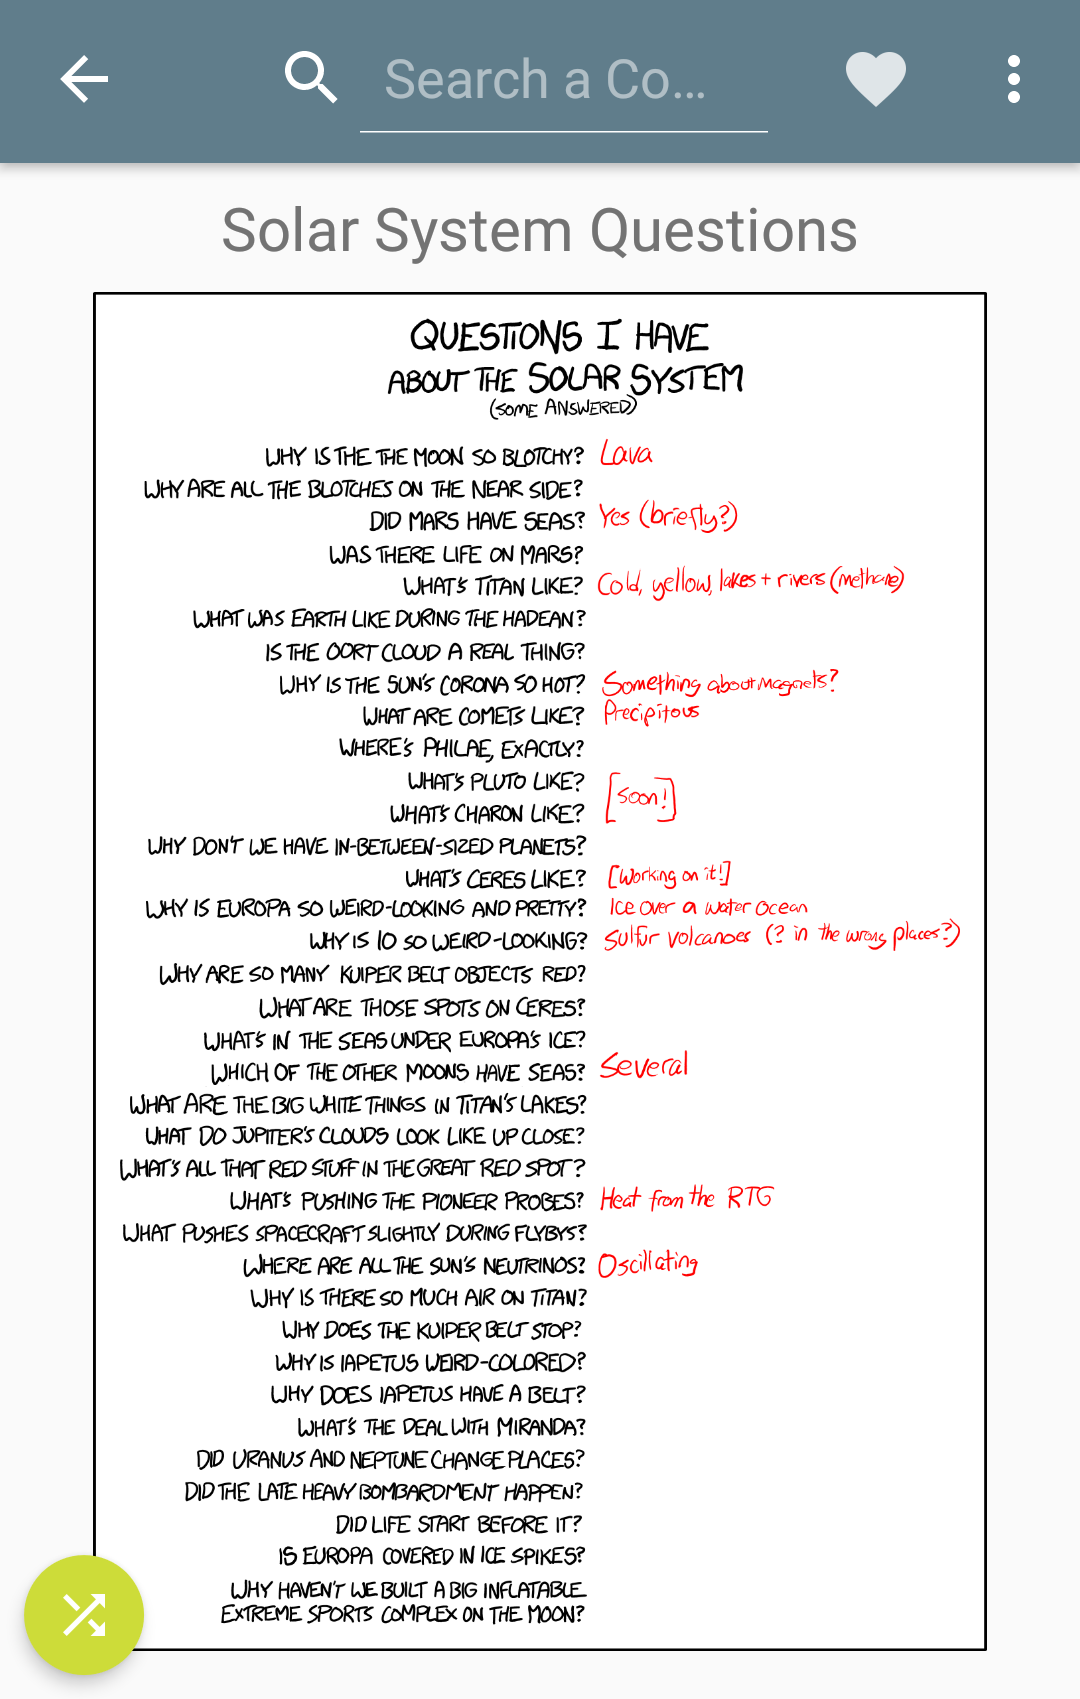 Search a Co...
Solar System Questions
QUESTIONS I HAVE
ABOUT THE SOLAR SYSTEM
(SOME ANSWERED)
WHY IS THE THE MOON SO BLOTCHY? Lava
WHY ARE ALL THE BLOTCHES ON THE NEAR SIDE?
DID MARS HAVE SEAS? Yes (briefly?)
WAS THERE LIFE ON MARS?
WHAT'S TITAN LIKE? Cold, yellow, lakes + rivers (methane)
WHAT WAS EARTH LIKE DURING THE HADEAN?
IS THE OORT CLOUD A REAL THING?
WHY IS THE SUN'S CORONA SO HOT? Something about magnets?
WHAT ARE COMETS LIKE? Precipitous
WHERE'S PHILAE, EXACTLY?
WHAT'S PLUTO LIKE?
[soon!]
WHAT'S CHARON LIKE?
WHY DON'T WE HAVE IN-BETWEEN-SIZED PLANETS?
WHAT'S CERES LIKE? [Working on it!]
WHY IS EUROPA SO WEIRD-LOOKING AND PRETTY? Ice over a water ocean
WHY IS IO SO WEIRD-LOOKING? Sulfur volcanoes (? in the wrong places?)
WHY ARE SO MANY KUIPER BELT OBJECTS RED?
WHAT ARE THOSE SPOTS ON CERES?
WHAT'S IN THE SEAS UNDER EUROPA'S ICE?
WHICH OF THE OTHER MOONS HAVE SEAS? Several
WHAT ARE THE BIG WHITE THINGS IN TITAN'S LAKES?
WHAT DO JUPITER'S CLOUDS LOOK LIKE UP CLOSE?
WHAT'S ALL THAT RED STUFF IN THE GREAT RED SPOT?
WHAT'S PUSHING THE PIONEER PROBES? Heat from the RTG
WHAT PUSHES SPACECRAFT SLIGHTLY DURING FLYBYS?
WHERE ARE ALL THE SUN'S NEUTRINOS? Oscillating
WHY IS THERE SO MUCH AIR ON TITAN?
WHY DOES THE KUIPER BELT STOP?
WHY IS IAPETUS WEIRD-COLORED?
WHY DOES IAPETUS HAVE A BELT?
WHAT'S THE DEAL WITH MIRANDA?
DID URANUS AND NEPTUNE CHANGE PLACES?
DID THE LATE HEAVY BOMBARDMENT HAPPEN?
DID LIFE START BEFORE IT?
IS EUROPA COVERED IN ICE SPIKES?
WHY HAVEN'T WE BUILT A BIG INFLATABLE
EXTREME SPORTS COMPLEX ON THE MOON?